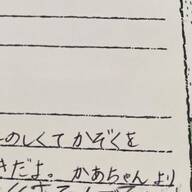 のしくてかぞくを
きだよ。かあちゃんより